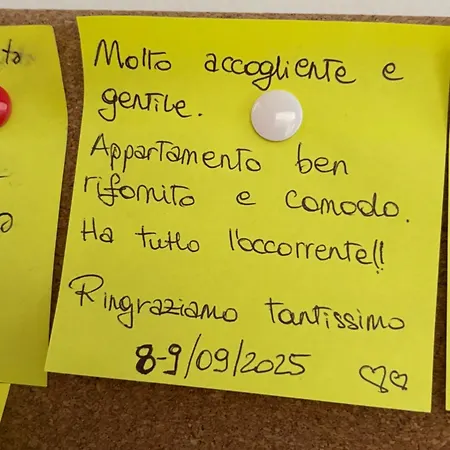 Molto accogliente e
gentile.
Appartamento ben
rifornito e comodo.
Ha tutto l'occorrente!!
Ringraziamo tantissimo
8-9/09/2025